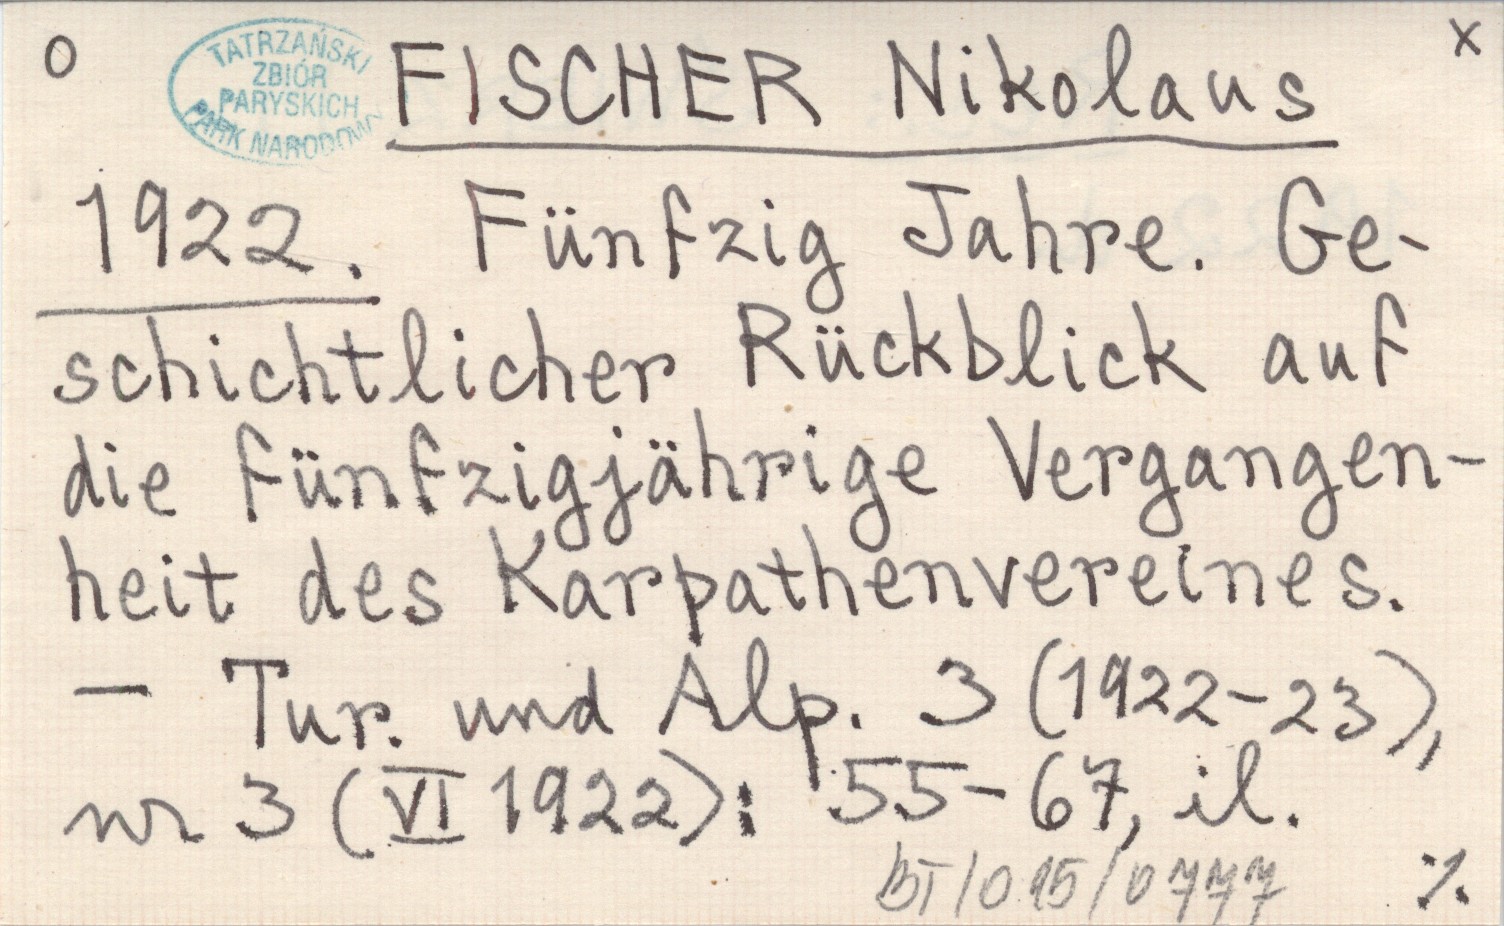 O
x
TATRZAŃSKI
ZBIÓR
PARYSKICH
PARK NARODOWY
FISCHER Nikolaus
1922. Fünfzig Jahre. Ge-
schichtlicher Rückblick auf
die fünfzigjährige Vergangen-
heit des Karpathenvereines.
— Tur. und Alp. 3 (1922-23),
nr 3 (VI 1922): 55-67, il.
BT/015/0777
·/.